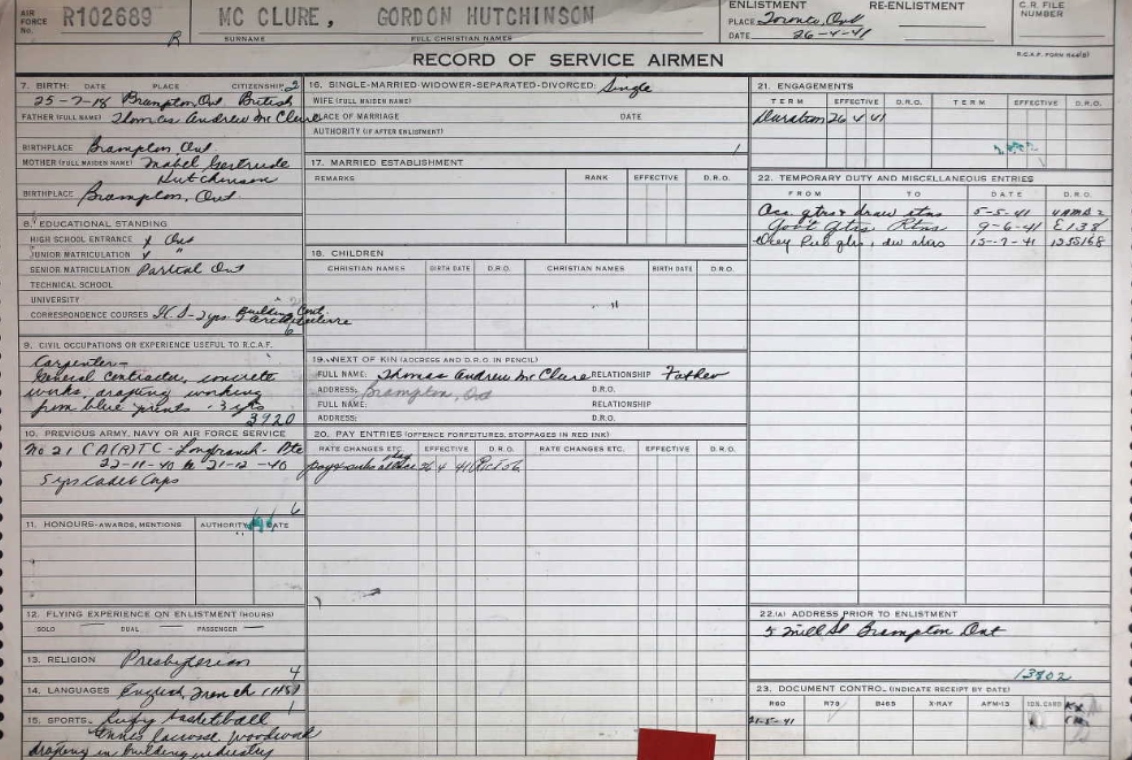 AIR FORCE No. R102689
MC CLURE, GORDON HUTCHINSON
R SURNAME FULL CHRISTIAN NAMES
ENLISTMENT RE-ENLISTMENT
PLACE Toronto, Ont
DATE 26-4-41
C.R. FILE NUMBER
RECORD OF SERVICE AIRMEN
7. BIRTH: DATE PLACE CITIZENSHIP 2
25-7-18 Brampton, Ont. British
FATHER (FULL NAME) Thomas Andrew Mc Clure
BIRTHPLACE Brampton Ont
MOTHER (FULL MAIDEN NAME) Mabel Gertrude
Hutchinson
BIRTHPLACE Brampton, Ont
8. EDUCATIONAL STANDING
HIGH SCHOOL ENTRANCE Ont
JUNIOR MATRICULATION "
SENIOR MATRICULATION Partial Ont
TECHNICAL SCHOOL
UNIVERSITY
CORRESPONDENCE COURSES
9. CIVIL OCCUPATIONS OR EXPERIENCE USEFUL TO R.C.A.F.
Carpenter-
General contractor, concrete
works, drafting working
from blue prints - 3 yrs
3920
10. PREVIOUS ARMY, NAVY OR AIR FORCE SERVICE
No 21 CA(R)TC - Longbranch - Pte
22-11-40 to 21-12-40
5 yrs Cadet Corps
6
11. HONOURS-AWARDS, MENTIONS AUTHORITY DATE
12. FLYING EXPERIENCE ON ENLISTMENT (HOURS)
SOLO DUAL PASSENGER
13. RELIGION Presbyterian
4
14. LANGUAGES English, French (HS)
1
15. SPORTS Rugby basketball
tennis lacrosse woodwork
drafting in building industry
16. SINGLE-MARRIED-WIDOWER-SEPARATED-DIVORCED: Single
WIFE (FULL MAIDEN NAME)
PLACE OF MARRIAGE DATE
AUTHORITY (IF AFTER ENLISTMENT)
1
17. MARRIED ESTABLISHMENT
REMARKS RANK EFFECTIVE D.R.O.
18. CHILDREN
CHRISTIAN NAMES BIRTH DATE D.R.O. CHRISTIAN NAMES BIRTH DATE D.R.O.
19. NEXT OF KIN (ADDRESS AND D.R.O. IN PENCIL)
FULL NAME: Thomas Andrew Mc Clure RELATIONSHIP Father
ADDRESS: Brampton, Ont D.R.O.
FULL NAME: RELATIONSHIP
ADDRESS: D.R.O.
20. PAY ENTRIES (OFFENCE FORFEITURES, STOPPAGES IN RED INK)
RATE CHANGES ETC. EFFECTIVE D.R.O. RATE CHANGES ETC. EFFECTIVE D.R.O.
26 4 41
21. ENGAGEMENTS
TERM EFFECTIVE D.R.O. TERM EFFECTIVE D.R.O.
Duration 26 4 41
22. TEMPORARY DUTY AND MISCELLANEOUS ENTRIES
FROM TO DATE D.R.O.
Occ. qtrs & draw rtns 5-5-41
Gov't Qtrs Rtns 9-6-41 E138
15-7-41
22.(A) ADDRESS PRIOR TO ENLISTMENT
5 Mill St Brampton Ont
13702
23. DOCUMENT CONTROL (INDICATE RECEIPT BY DATE)
R60 R79 B465 X-RAY AFM-13 IDS. CARD
21-5-41